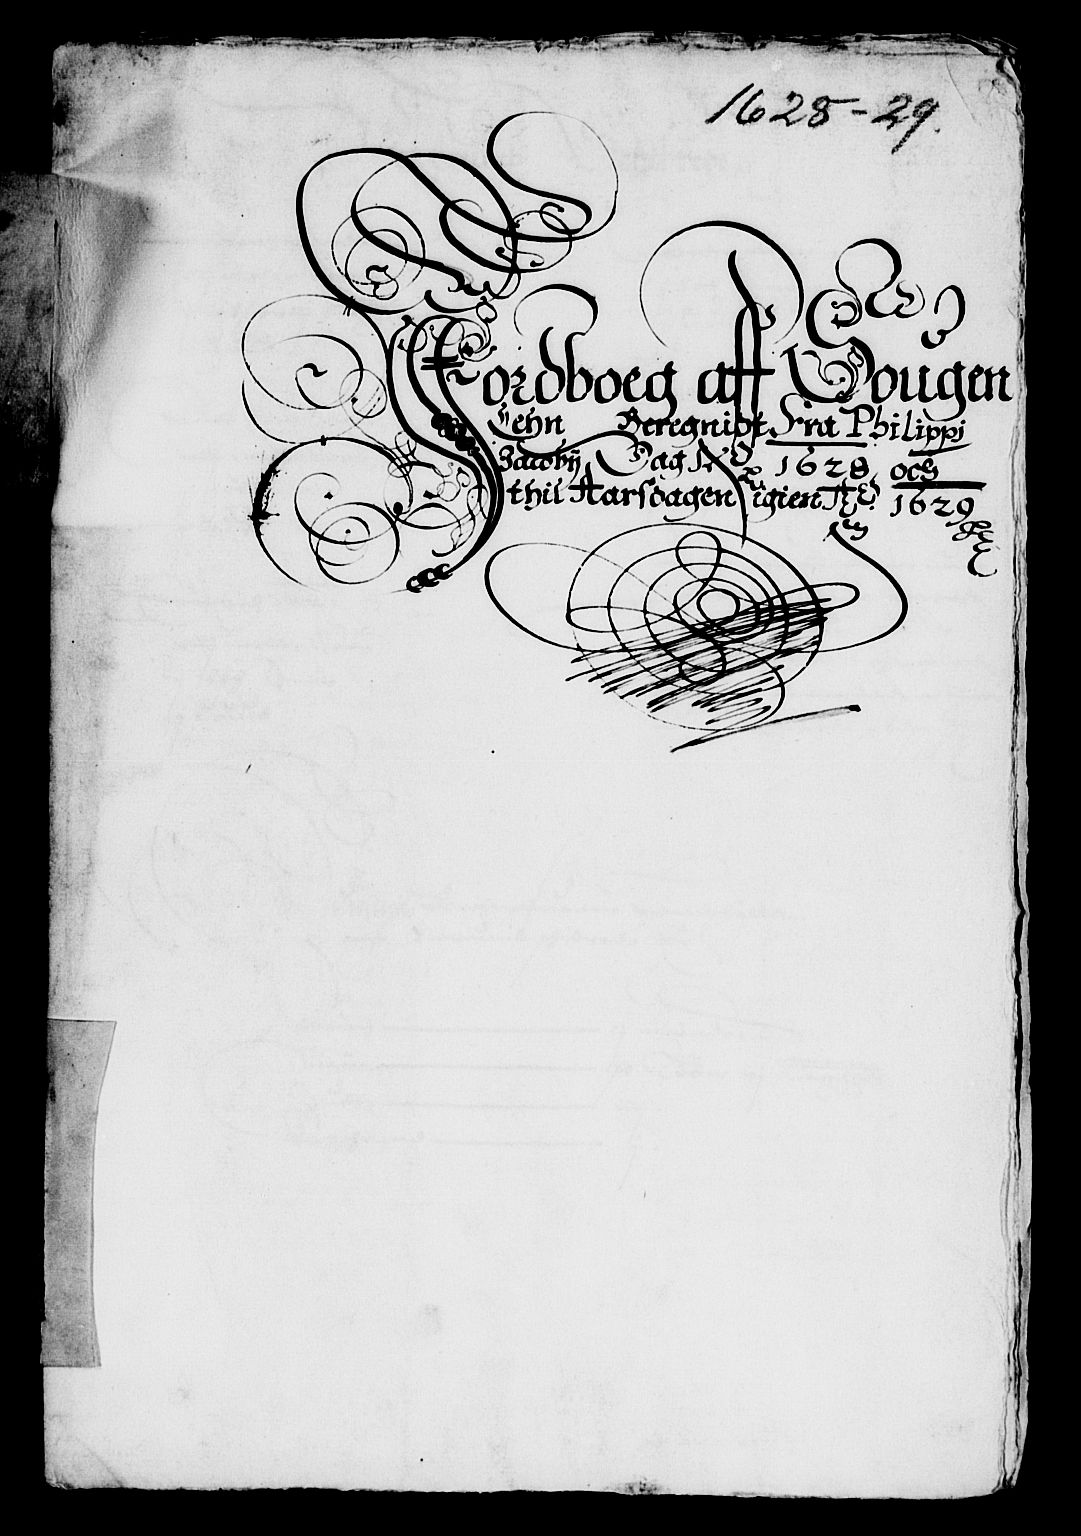 1628-29.
Jordboeg aff Sougen
Lehn Beregnidt Fra Philippi
Jacobij Dag 1628 och
thil Aarsdagen Igien 1629